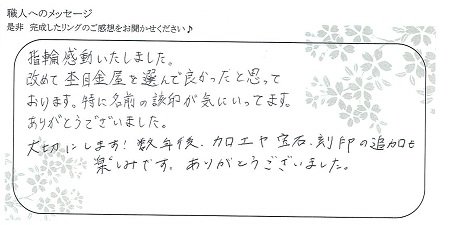 職人へのメッセージ
是非 完成したリングのご感想をお聞かせください♪
指輪感動いたしました。
改めて 杢目金屋を選んで良かったと思って
おります。特に名前の刻印が気にいってます。
ありがとうございました。
大切にします! 数年後、カロエヤ 宝石、刻印の追加も
楽しみです。ありがとうございました。